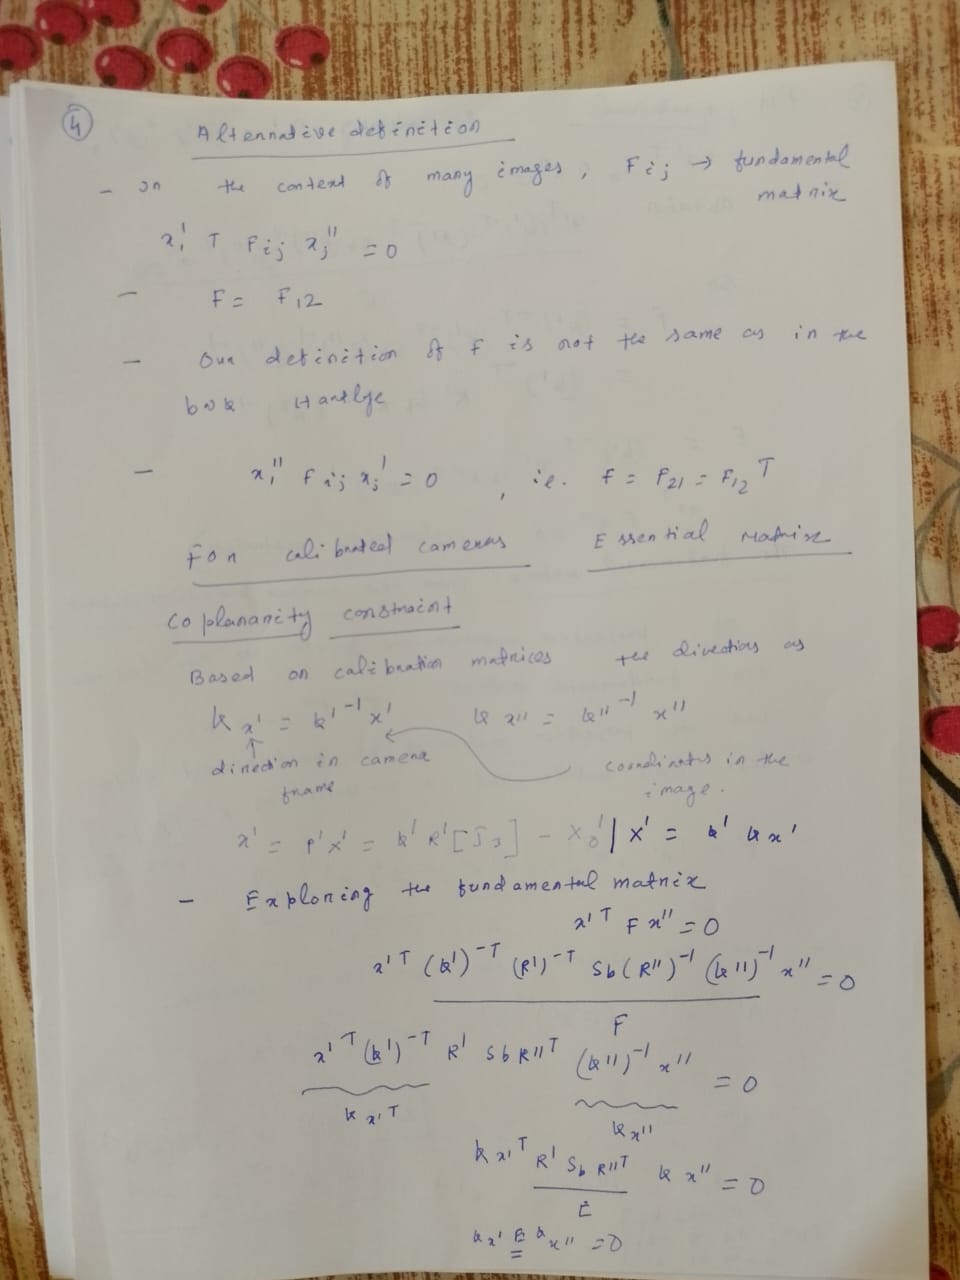 4
Alternative definition
- In the context of many images, Fij → fundamental matrix
xi' T Fij xj'' = 0
- F = F12
- Our definition of F is not the same as in the
book Hartlye
- xi'' Fij xj' = 0, i.e. F = F21 = F12 T
For calibrated cameras Essential Matrix
Coplanarity constraint
Based on calibration matrices the directions as
k x' = k'^-1 x' k x'' = k''^-1 x''
direction in camera frame
coordinates in the image.
x' = P'X' = k' R' [I3] - X0' | X' = k' k x'
- Exploring the fundamental matrix
x'^T F x'' = 0
x'^T (k')^-T (R')^-T Sb (R'')^-1 (k'')^-1 x'' = 0
F
x'^T (k')^-T R' Sb R''^T (k'')^-1 x'' = 0
k x'^T k x''
k x'^T R' Sb R''^T k x'' = 0
E
k x' E k x'' = 0